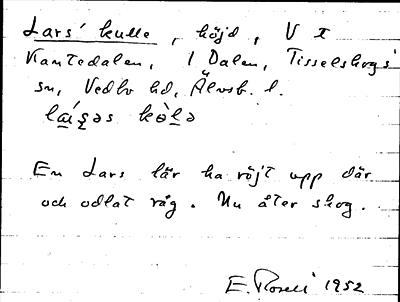 Lars' kulle, höjd, V I
Kantedalen, i Dalen, Tisselskogs
sn, Vedbo hd, Älvsb. l.
En Lars lär ha röjt upp där
och odlat råg. Nu åter skog.
E. Rosell 1952